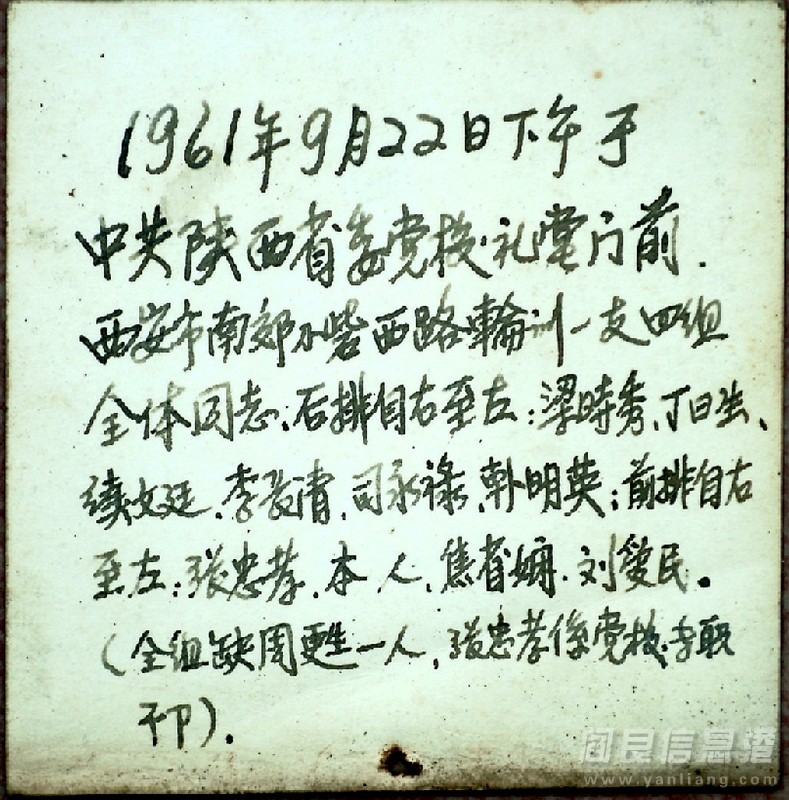 1961年9月22日下午于
中共陕西省委党校礼堂门前.
西安市南郊小砦西路輪训一支四组
全体同志、后排自右至左:梁時秀、丁日生、
续文廷、李敬清、司永禄、韩明英;前排自右
至左:張忠孝、本人、焦省娴、刘爱民。
(全组缺周甦一人,張忠孝係党校专职
干部).
阎良信息港
www.yanliang.com